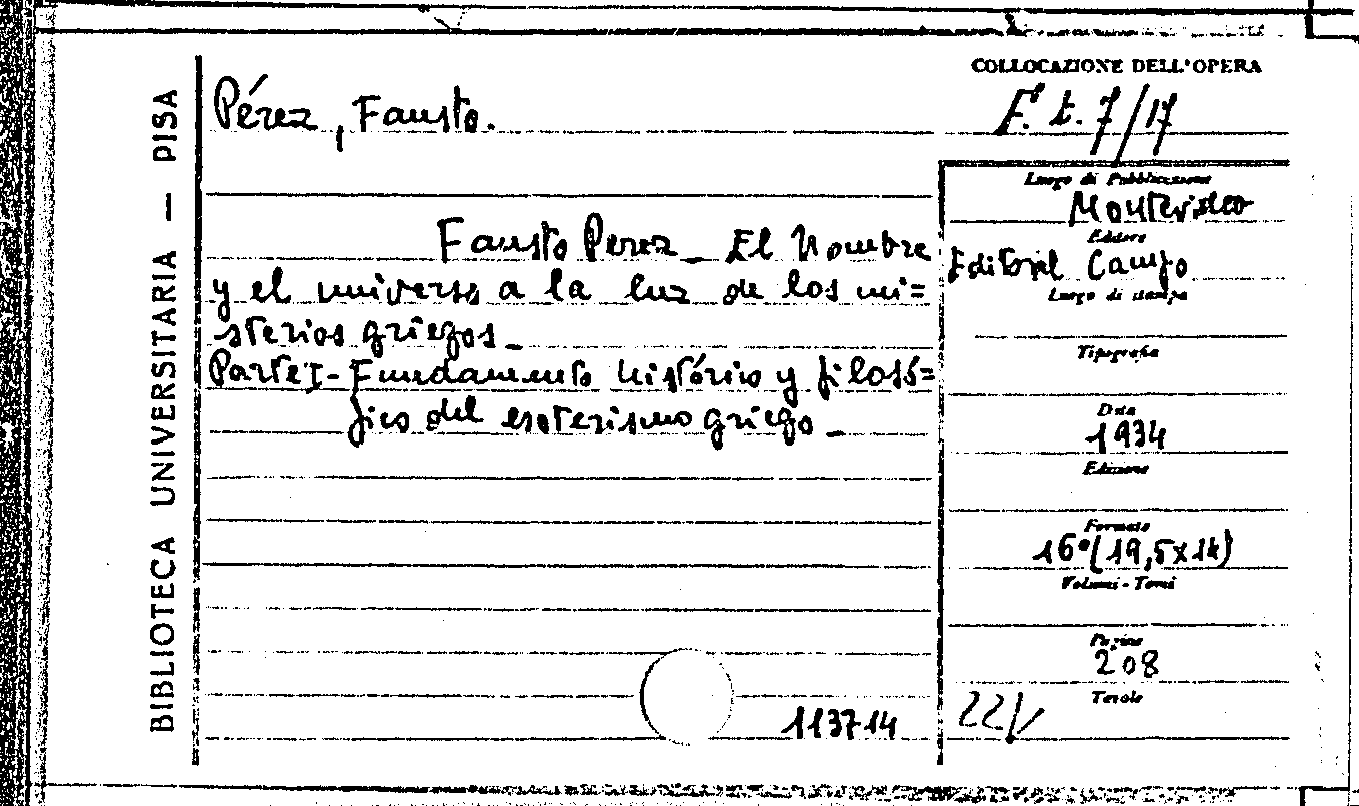 BIBLIOTECA UNIVERSITARIA — PISA
COLLOCAZIONE DELL'OPERA
F. t. 7/17
Pérez, Fausto.
Fausto Perez_ El Hombre
y el universo a la luz de los mi=
sterios griegos_
Parte I - Fundamento histórico y filosó=
fico del esoterismo griego_
113714
Luogo di Pubblicazione
Montevideo
Editore
Editorial Campo
Luogo di stampa
Tipografia
Data
1934
Edizione
Formato
16°(19,5x14)
Volumi - Tomi
Pagine
208
Tavole